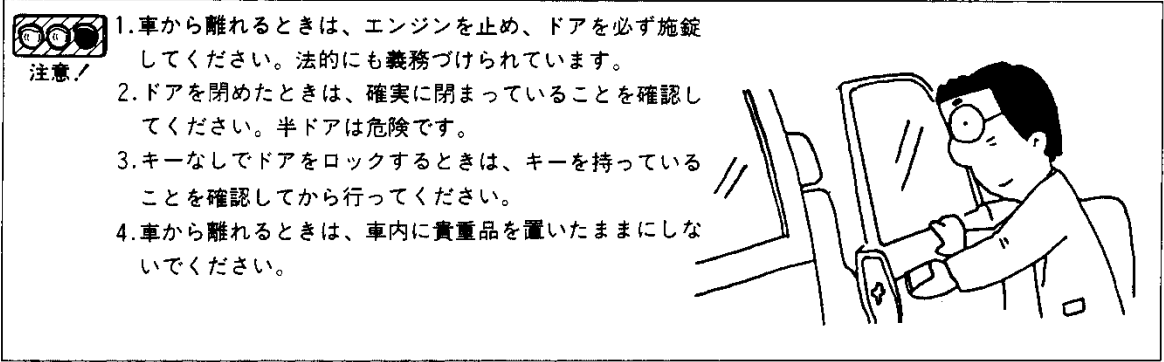 注意!
1.車から離れるときは、エンジンを止め、ドアを必ず施錠
してください。法的にも義務づけられています。
2.ドアを閉めたときは、確実に閉まっていることを確認し
てください。半ドアは危険です。
3.キーなしでドアをロックするときは、キーを持っている
ことを確認してから行ってください。
4.車から離れるときは、車内に貴重品を置いたままにしな
いでください。